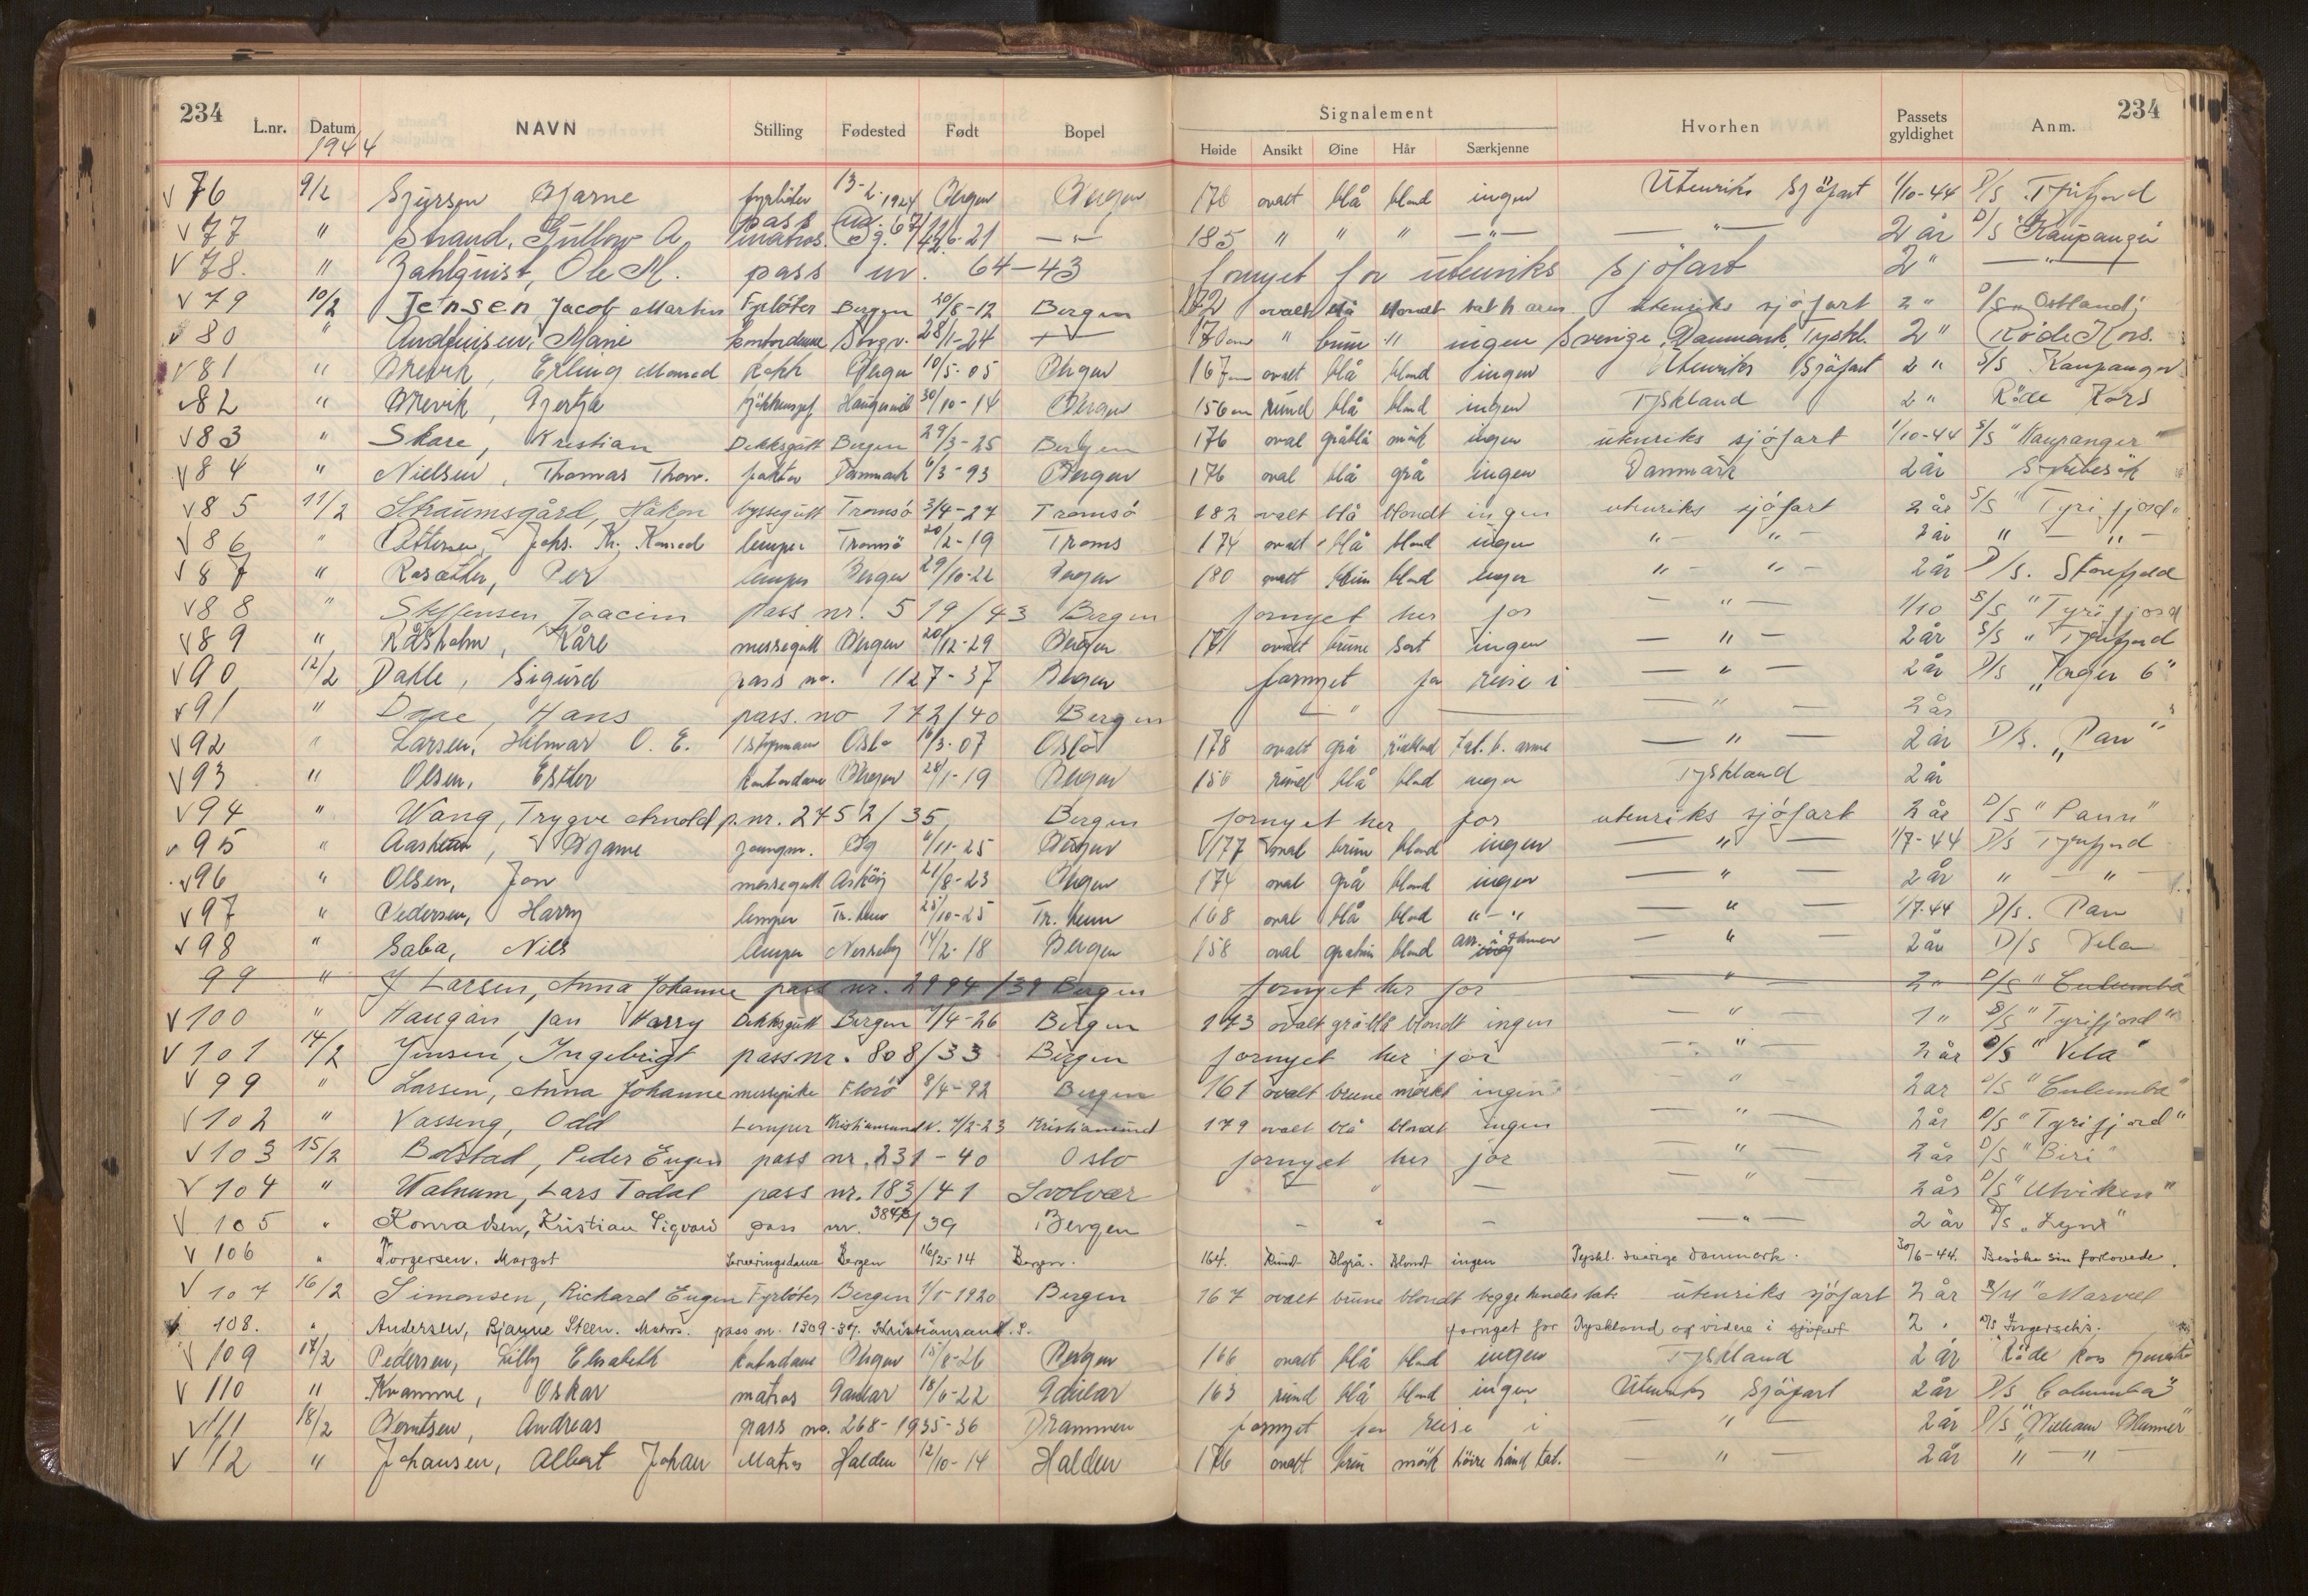 234 L.nr. Datum NAVN Stilling Fødested Født Bopel Signalement Hvorhen Passets gyldighet Anm. 234
1944 Høide Ansikt Øine Hår Særkjenne
76 9/2 Bjarne fyrböter 13-2-1924 Bergen Bergen 170 ovalt blå blond ingen Utenriks Sjöfart 1/10-44 D/S Tyrifjord
pass nr. 67/42
77 " Strand, A. matros Bg. 6-21 —"— 185 " " " —"— —"— 2 år D/S Kaupanger
78. " Zahlquist, Ole M. pass nr. 64-43 fornyet for utenriks sjöfart 2 " —"—
79 10/2 Jensen Jacob Martin Fyrböter Bergen 20/8-12 Bergen 172 ovalt blå blondt tat h arm utenriks sjöfart 2 " D/S "Ostland"
80 " Marie kontordame 28/1-24 170 cm " brun " ingen Sverige, Danmark, Tyskl. 2 " Röde Kors.
81 " Brevik, Erling Monrad Kokk Bergen 10/5-05 Bergen 167 cm ovalt blå blond ingen Utenriks Sjöfart 2 " S/S Kaupanger
82 " Brevik, Gjertje 30/10-14 Bergen 156 cm rund blå blond ingen Tyskland 2 " Röde Kors
83 " Skare, Kristian Dekksgutt Bergen 29/3-25 Bergen 176 oval gråblå mörk ingen utenriks sjöfart 1/10-44 S/S "Kaupanger"
84 " Nielsen, Thomas Thom. faktor Danmark 6/3-93 Bergen 176 oval blå grå ingen Danmark 2 år
85 11/2 Straumsgård, Håkon byssegutt Tromsö 3/4-27 Tromsö 182 ovalt blå blondt ingen utenriks sjöfart 2 år S/S "Tyrifjord"
86 " Pettersen, Johs. Kr. Konrad lemper Tromsö 20/2-19 Troms 174 ovalt blå blond ingen "- "- 2 år " — " —
87 " Per lemper Bergen 29/10-22 Bergen 180 ovalt brun blond ingen "- "- 2 år D/S. Storefjeld
88 " Steffensen Joacim pass nr. 519/43 Bergen fornyet her for — " — 1/10 S/S "Tyrifjord
89 " Råsholm, Kåre messegutt Bergen 20/12-29 Bergen 171 ovalt brune sort ingen — " — 2 år S/S " Tyrifjord
90 12/2 Dahle, Sigurd pass no. 1127-37 Bergen fornyet for reise i — " — 2 år D/S "Inger 6"
91 " Hans pass. no 172/40 Bergen — " — — " — 2 år "
92 " Larsen, Hilmar O. E. 1 styrmann Oslo 16/3-07 Oslo 178 ovalt grå rödblond Tat. b. arme — " — 2 år D/S. "Pan"
93 " Olsen, Esther Kontordame Bergen 28/1-19 Bergen 156 rund blå blond ingen Tyskland 2 år
94 " Wang, Trygve Arnold p.nr. 2752/35 Bergen fornyet her for utenriks sjöfart 2 år D/S "Pann"
95 " Bjarne jungm. Bg 6/11-25 Bergen 177 oval brun blond ingen — " — 1/7-44 D/S Tyrifjord
96 " Olsen, Jon messegutt Asköy 21/8-23 Bergen 174 oval grå blond ingen — " — 2 år " — " —
97 " Pedersen, Harry lemper Tr.heim 25/10-25 Tr.heim 168 oval blå blond "-" — " — 1/7-44 D/S. Pan
98 " Saba, Nils lemper Nesseby 14/2-18 Bergen 158 oval blond arr. i — " — 2 år D/S Vela
99 " Larsen, Anna Johanne pass nr. 2994/39 Bergen fornyet her for — " — 2 " D/S "Culumba
100 " Haugan Jan Harry Dekksgutt Bergen 7/4-26 Bergen 173 ovalt gråblå blondt ingen — " — 1 " S/S "Tyrifjord"
101 14/2 Jensen, Ingebrigt pass nr. 808/33 Bergen fornyet her for — " — 2 år D/S "Vela"
99 " Larsen, Anna Johanne messepike Florö 8/4-92 Bergen 161 ovalt brune mörkt ingen — " — 2 år D/S "Culumba"
102 " Vasseng, Odd Lemper Kristiansund N. 7/2-23 Kristiansund 179 ovalt blå blondt ingen — " — 2 år D/S "Tyrifjord"
103 15/2 Bolstad, Peder Eugen pass nr. 231-40 Oslo fornyet her for — " — 2 år D/S "Biri"
104 " Walnum, Lars Todal pass nr. 183/41 Svolvær — " — — " — 2 år D/S "Utviken"
105 " Konradsen, Kristian Sigvard pass nr. 3847/39 Bergen — " — — " — 2 år D/S "Lynx"
106 " Torgersen, Margot Serveringsdame Bergen 16/2-14 Bergen. 164. Rundt Blgrå. Blondt ingen Tyskl. Sverige Danmark. 30/6-44. Besöke sin forlovede.
107 16/2 Simonsen, Richard Eugen Fyrböter Bergen 1/5-1920 Bergen 167 ovalt brune blondt begge hender tat. utenriks sjöfart 2 år "Marvel
108. " Andersen, Bjarne Steen. Matros. pass nr. 1309-37. Kristiansand. S. fornyet for Tyskland og videre i sjöfart 2 "
109 17/2 Pedersen, Lilly Elisabeth Kontordame Bergen 15/8-26 Bergen 166 ovalt blå blond ingen Tyskland 2 år Röde Kors
110 " Kvamme, Oskar matros Gaular 18/6-22 Gaular 163 rund blå blond ingen Utenriks Sjöfart 2 år D/S Columba"
111 18/2 Berntsen, Andreas pass no. 268-1935-36 Drammen fornyet for reise i " — 2 år D/S "William Blumer"
112 " Johansen, Albert Johan Matros Halden 12/10-14 Halden 176 ovalt brun mörk höire hånd tat. — " — 2 år " — "